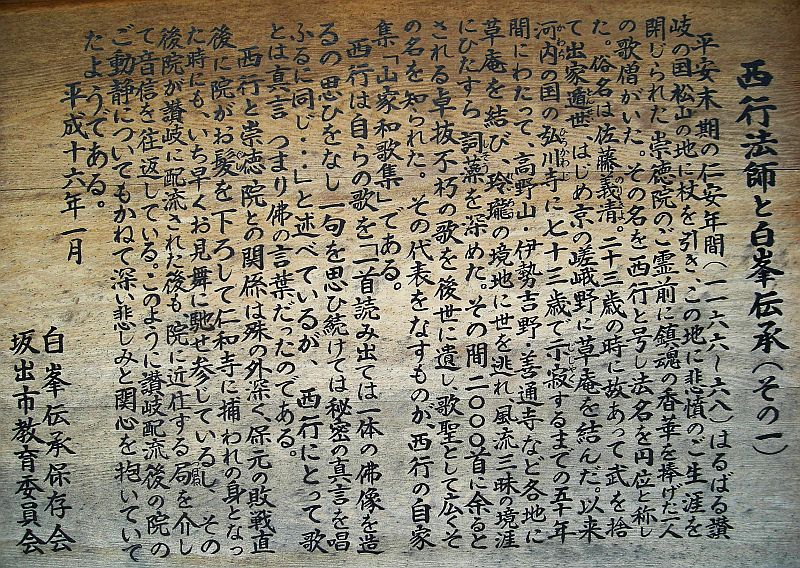 西行法師と白峯伝承（その一）
平安末期の仁安年間（一一六六～六八）はるばる讃
岐の国松山の地に杖を引き、この地に悲憤のご生涯を
閉じられた崇徳院のご霊前に鎮魂の香華を捧げた一人
の歌僧がいた。その名を西行と号し法名を円位と称し
た。俗名は佐藤義清。二十三歳の時に故あって武を捨
て出家遁世、はじめ京の嵯峨野に草庵を結んだ。以来
河内の国の弘川寺に七十三歳で示寂するまでの五十年
間にわたって、高野山・伊勢吉野・善通寺など各地に
草庵を結び、玲瓏の境地に世を逃れ、風流三昧の境涯
にひたすら詞藻を深めた。その間二〇〇〇首に余ると
される卓抜不朽の歌を後世に遺し、歌聖として広くそ
の名を知られた。その代表をなすものが、西行の自家
集「山家和歌集」である。
西行は自らの歌を「一首読み出ては一体の佛像を造
るの思ひをなし一句を思ひ続けては秘密の真言を唱
ふるに同じ・・」と述べているが、西行にとって歌
とは真言つまり佛の言葉だったのである。
西行と崇徳院との関係は殊の外深く、保元の敗戦直
後に院がお髪を下ろして仁和寺に捕われの身となっ
た時にも、いち早くお見舞に馳せ参じているし、その
後院が讃岐に配流された後も、院に近仕する局を介し
て音信を往返している。このように讃岐配流後の院の
ご動静についてもかねて深い悲しみと関心を抱いていて
たようである。
平成十六年一月
白峯伝承保存会
坂出市教育委員会